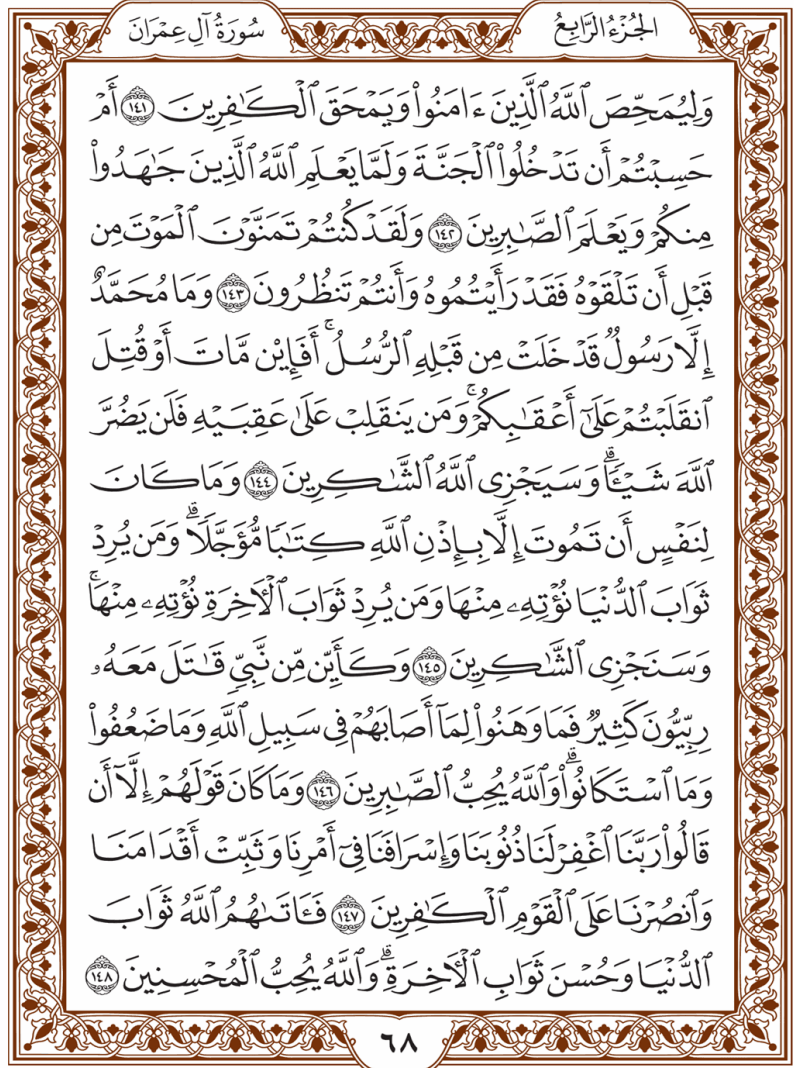 الجُزْءُ الرَّابِعُ
سُورَةُ آلِ عِمْرَانَ
وَلِيُمَحِّصَ ٱللَّهُ ٱلَّذِينَ ءَامَنُوا۟ وَيَمْحَقَ ٱلْكَـٰفِرِينَ ١٤١ أَمْ
حَسِبْتُمْ أَن تَدْخُلُوا۟ ٱلْجَنَّةَ وَلَمَّا يَعْلَمِ ٱللَّهُ ٱلَّذِينَ جَـٰهَدُوا۟
مِنكُمْ وَيَعْلَمَ ٱلصَّـٰبِرِينَ ١٤٢ وَلَقَدْ كُنتُمْ تَمَنَّوْنَ ٱلْمَوْتَ مِن
قَبْلِ أَن تَلْقَوْهُ فَقَدْ رَأَيْتُمُوهُ وَأَنتُمْ تَنظُرُونَ ١٤٣ وَمَا مُحَمَّدٌ
إِلَّا رَسُولٌ قَدْ خَلَتْ مِن قَبْلِهِ ٱلرُّسُلُ ۚ أَفَإِيْن مَّاتَ أَوْ قُتِلَ
ٱنقَلَبْتُمْ عَلَىٰٓ أَعْقَـٰبِكُمْ ۚ وَمَن يَنقَلِبْ عَلَىٰ عَقِبَيْهِ فَلَن يَضُرَّ
ٱللَّهَ شَيْـًٔا ۗ وَسَيَجْزِى ٱللَّهُ ٱلشَّـٰكِرِينَ ١٤٤ وَمَا كَانَ
لِنَفْسٍ أَن تَمُوتَ إِلَّا بِإِذْنِ ٱللَّهِ كِتَـٰبًا مُّؤَجَّلًا ۗ وَمَن يُرِدْ
ثَوَابَ ٱلدُّنْيَا نُؤْتِهِۦ مِنْهَا وَمَن يُرِدْ ثَوَابَ ٱلْـَٔاخِرَةِ نُؤْتِهِۦ مِنْهَا ۚ
وَسَنَجْزِى ٱلشَّـٰكِرِينَ ١٤٥ وَكَأَيِّن مِّن نَّبِىٍّ قَـٰتَلَ مَعَهُۥ
رِبِّيُّونَ كَثِيرٌ فَمَا وَهَنُوا۟ لِمَآ أَصَابَهُمْ فِى سَبِيلِ ٱللَّهِ وَمَا ضَعُفُوا۟
وَمَا ٱسْتَكَانُوا۟ ۗ وَٱللَّهُ يُحِبُّ ٱلصَّـٰبِرِينَ ١٤٦ وَمَا كَانَ قَوْلَهُمْ إِلَّآ أَن
قَالُوا۟ رَبَّنَا ٱغْفِرْ لَنَا ذُنُوبَنَا وَإِسْرَافَنَا فِىٓ أَمْرِنَا وَثَبِّتْ أَقْدَامَنَا
وَٱنصُرْنَا عَلَى ٱلْقَوْمِ ٱلْكَـٰفِرِينَ ١٤٧ فَـَٔاتَىٰهُمُ ٱللَّهُ ثَوَابَ
ٱلدُّنْيَا وَحُسْنَ ثَوَابِ ٱلْـَٔاخِرَةِ ۗ وَٱللَّهُ يُحِبُّ ٱلْمُحْسِنِينَ ١٤٨
٦٨